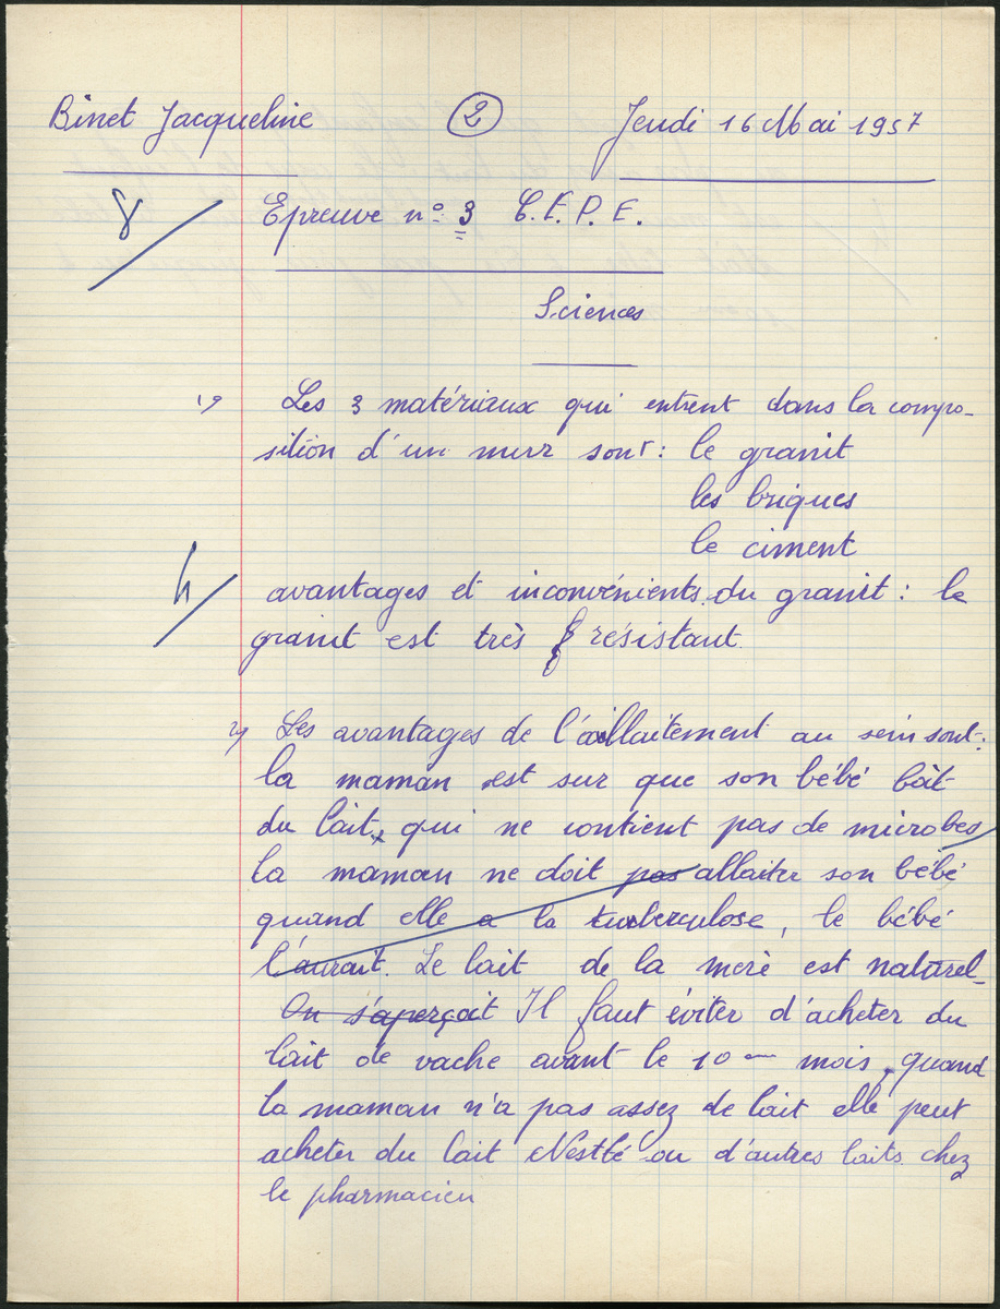 Binet Jacqueline ② Jeudi 16 Mai 1957
8 Epreuve n° 3 C.E.P.E.
Sciences
1° Les 3 matériaux qui entrent dans la compo-
sition d'un mur sont : le granit
les briques
le ciment
4 avantages et inconvénients du granit : le
granit est très résistant.
2) Les avantages de l'allaitement au sein sont :
la maman est sur que son bébé bât
du lait, qui ne contient pas de microbes
la maman ne doit pas allaiter son bébé
quand elle a la tuberculose, le bébé
l'aurait. Le lait de la mère est naturel
On s'aperçoit Il faut éviter d'acheter du
lait de vache avant le 10em mois, quand
la maman n'a pas assez de lait elle peut
acheter du lait Nestlé ou d'autres laits chez
le pharmacien